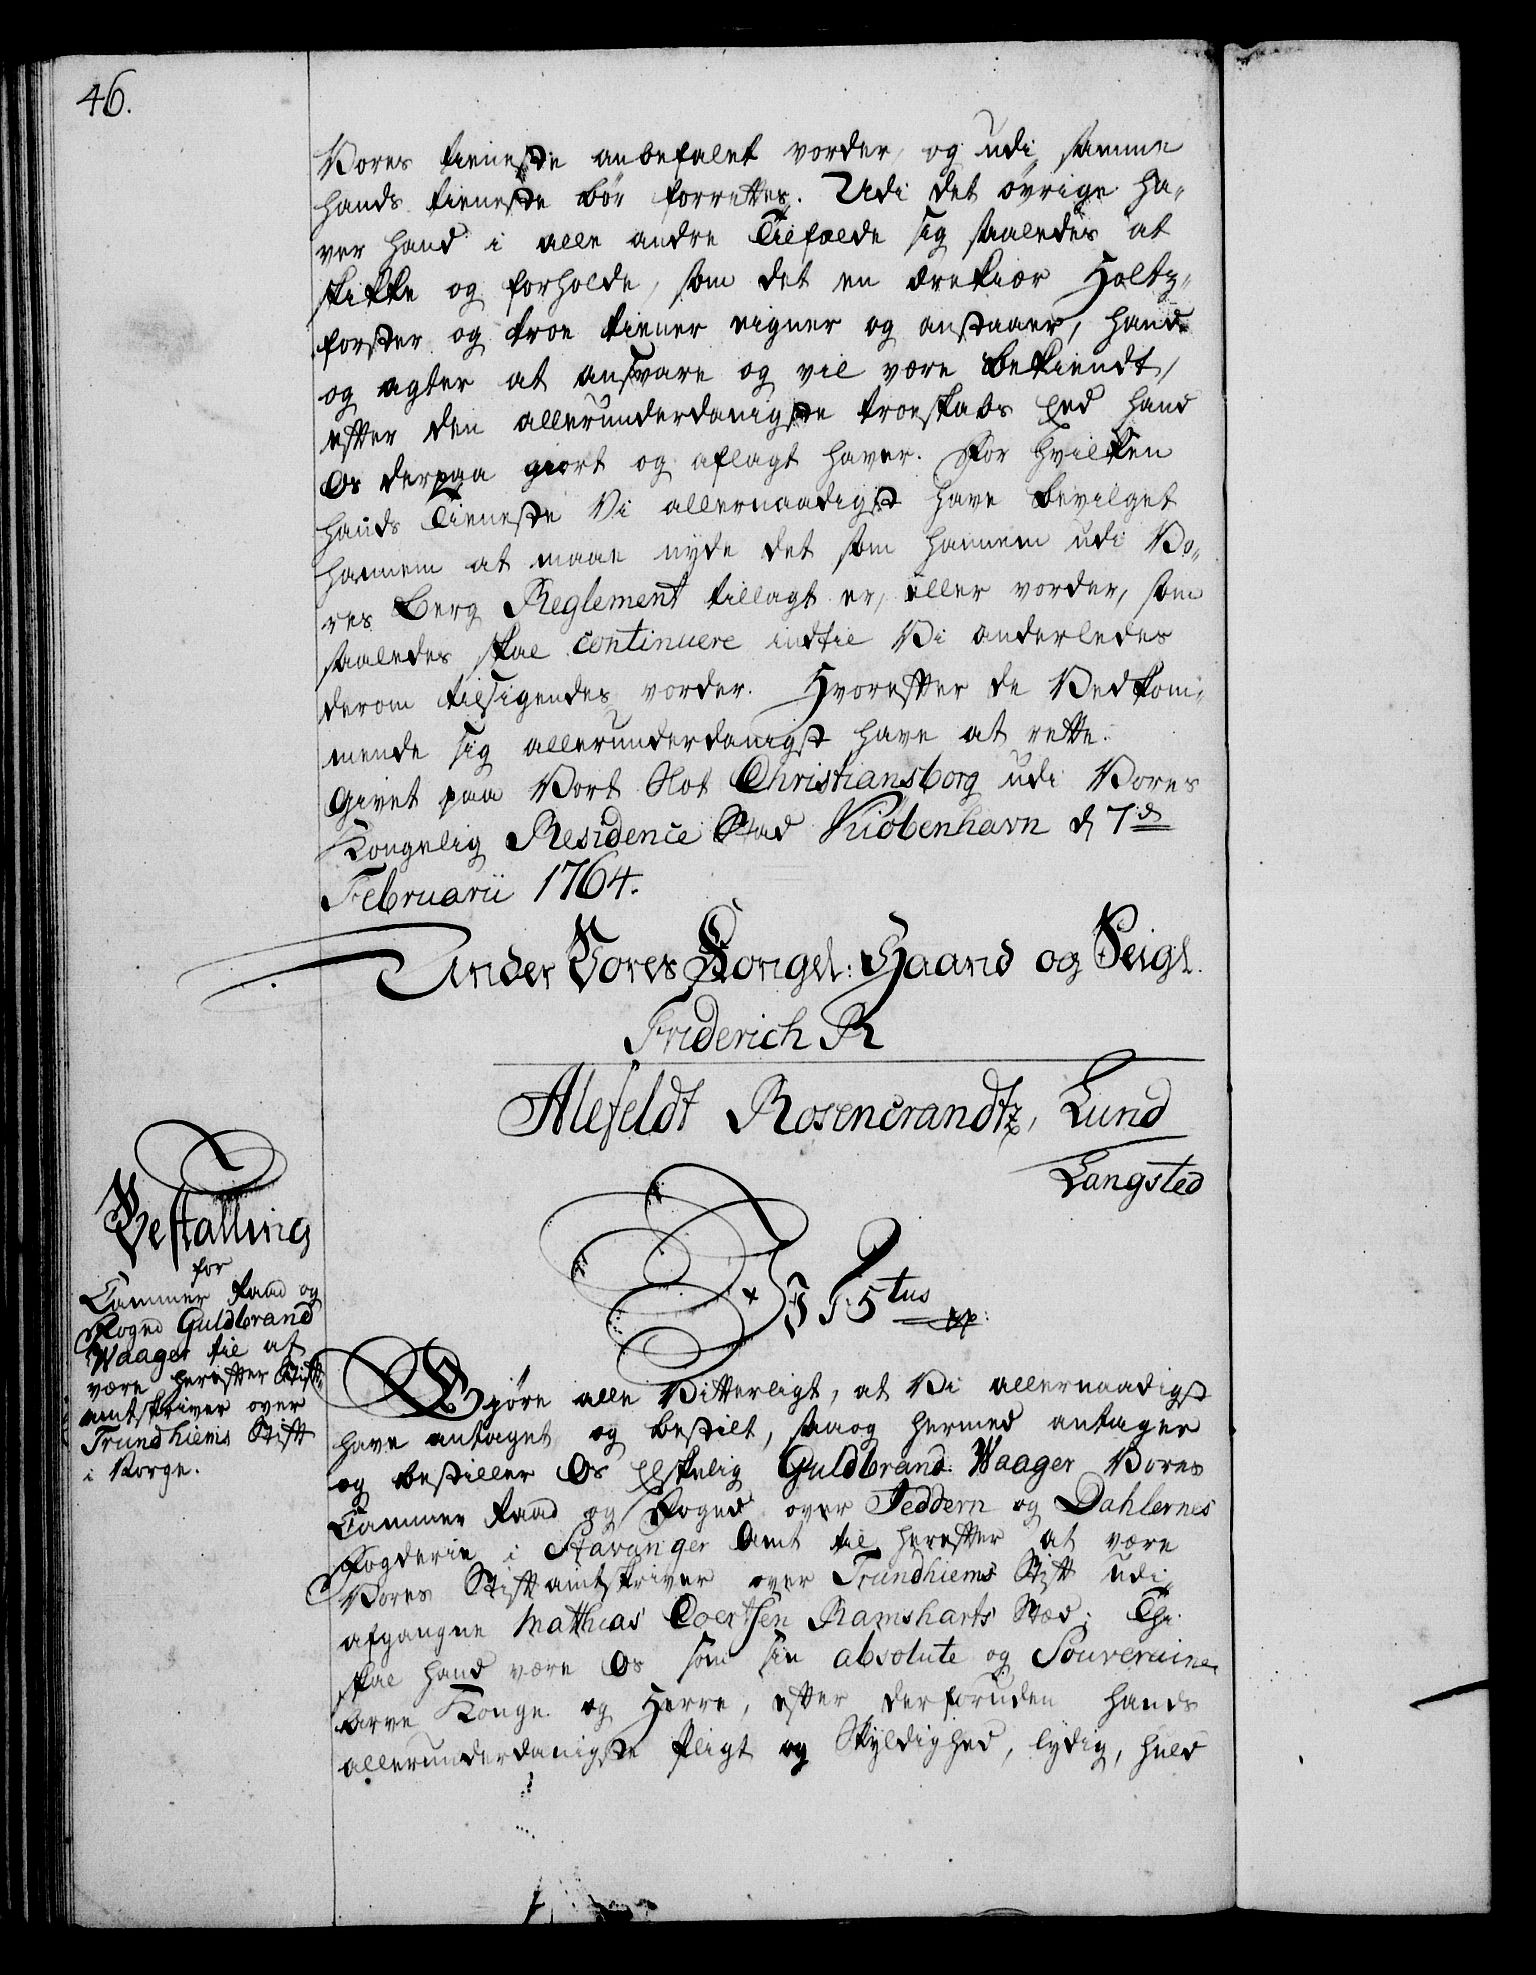 46.
Vores tieneste anbefalet vorder, og udi samme
hands tieneste bör forrettes. Udi det övrige ha-
ver hand i alle andre Tilfælde sig saaledes at
skikke og forholde, som det en ærekiær Holtz-
forster og troe tiener eigner og anstaaer, hand
og agter at ansvare og vil være bekiendt,
efter den allerunderdanigste troeskabs Eed hand
Os derpaa giort og aflagt haver. For hvilken
hands Tieneste Vi allernaadigst have bevilget
hannem at maae nyde det som hannem udi Vo-
res Berg Reglement tillagt er, eller vorder, som
saaledes skal continuere indtil Vi anderledes
derom tilsigendes vorder. Hvorefter de Vedkom-
mende sig allerunderdanigst have at rette.
Givet paa Vort Slot Christiansborg udi Vores
Kongelig Residence Stad Kiöbenhavn d 7de
Februarii 1764.
Under Vores Kongel: Haand og Seigl.
Friderich R
Alefeldt Rosencrandtz, Lund
Langsted
Bestalling
for
Cammer Raad og
Foged Guldbrand
Waager til at
være herefter Stift-
amtskriver over
Trundhiems Stift
i Norge.
F 5tus
Gjöre alle Vitterligt, at Vi allernaadigst
have antaget og bestilt, saa og hermed antager
og bestiller Os Elskelig Guldbrand Waager Vores
Cammer Raad og Foged over Jeddern og Dahlernes
Fogderie i Stavanger Amt til herefter at være
Vores Stiftamtskriver over Trundhiems Stift udi
afgangne Matthias Coertsen Ramsharts Stæd; Thi
skal hand være Os som sin absolute og Souveraine
Arve Konge og Herre, efter derforuden hands
allerunderdanigste Pligt og Skyldighed, lydig, huld